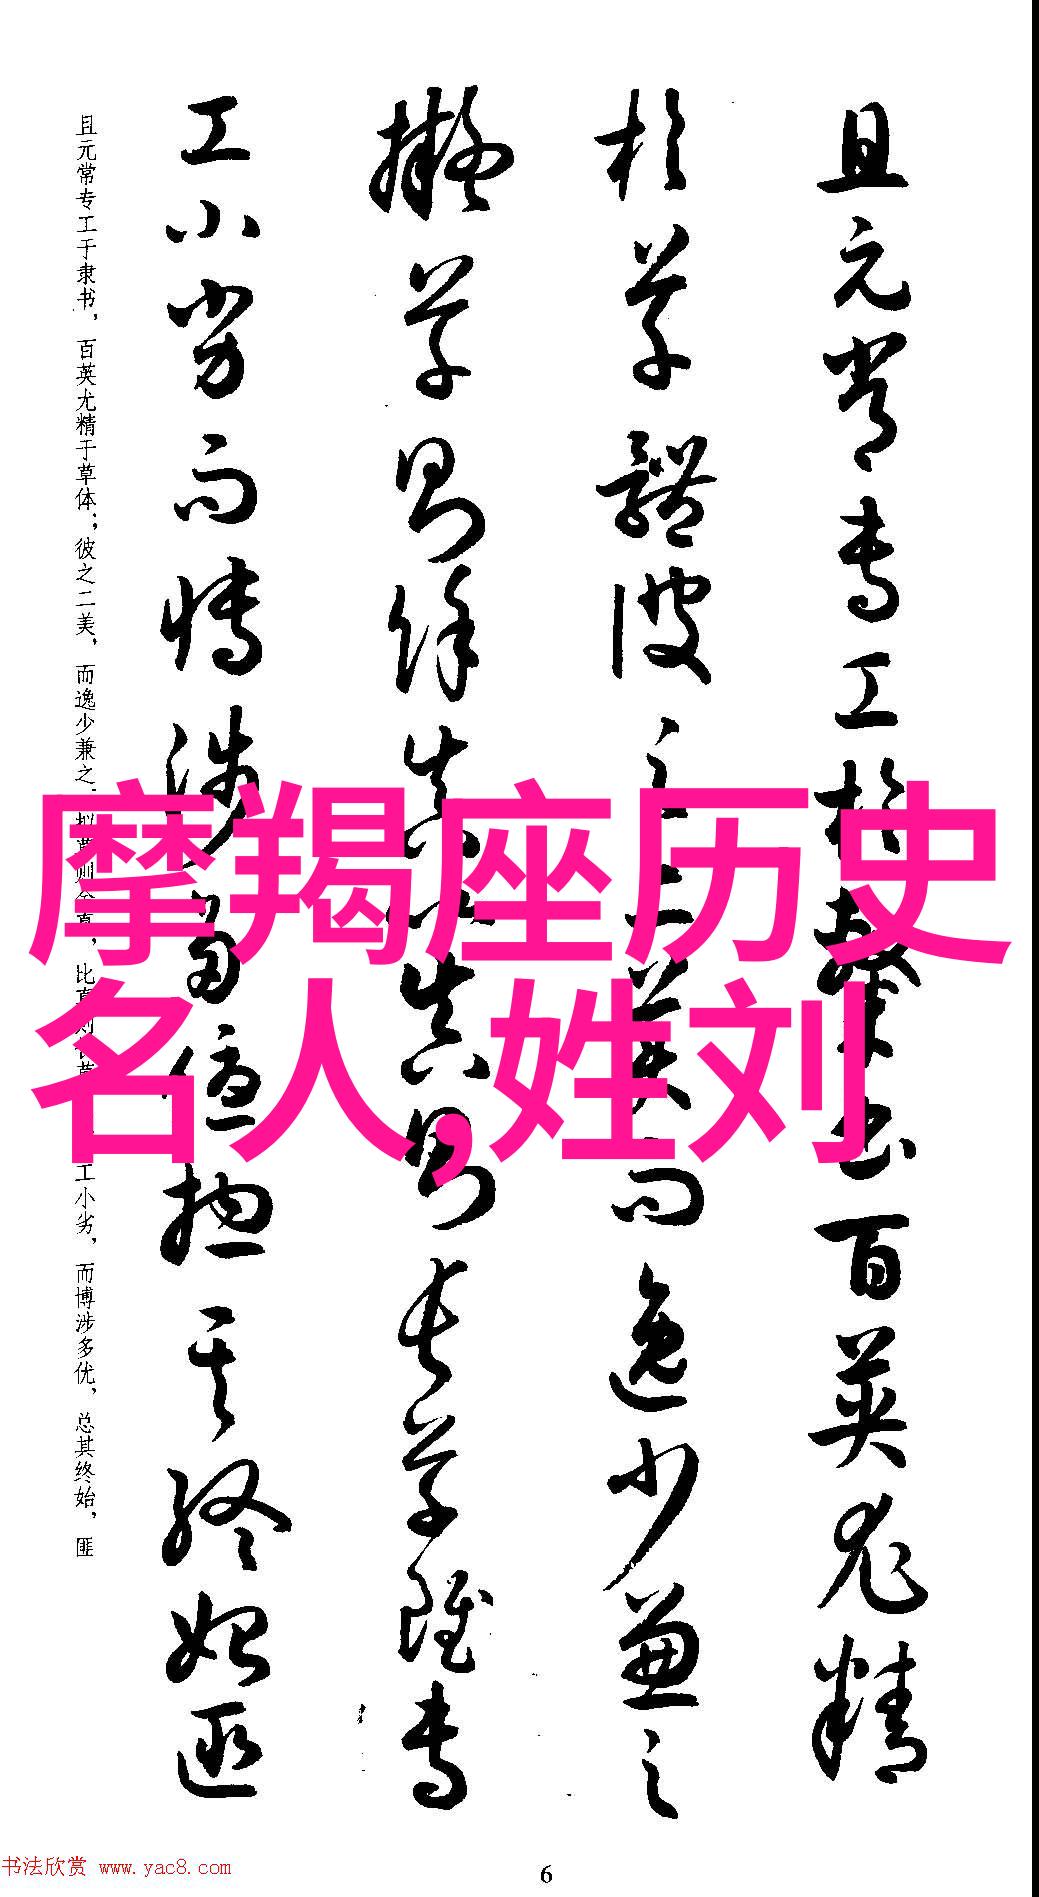 且元常专工于隶书，百英尤精于草体；彼之二美，而逸少兼之
比真则
工小劣，而博涉多优，总其终始，匪
且元常专工於隸書百英尤精
於草體彼之二美而逸少兼之
擬草則餘真比真則長草雖專
工小劣而博涉多優揔其终始匪
摩羯座历史
名人,姓刘
书法欣赏 www.yac8.com
6